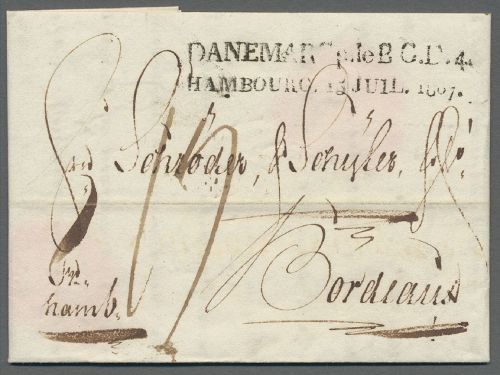 DANEMARC p. le B. G. D. 4.
HAMBOURG. 13 JUIL. 1807.
Schröder, & Schÿler, &Cº
Bordeaux
hamb.